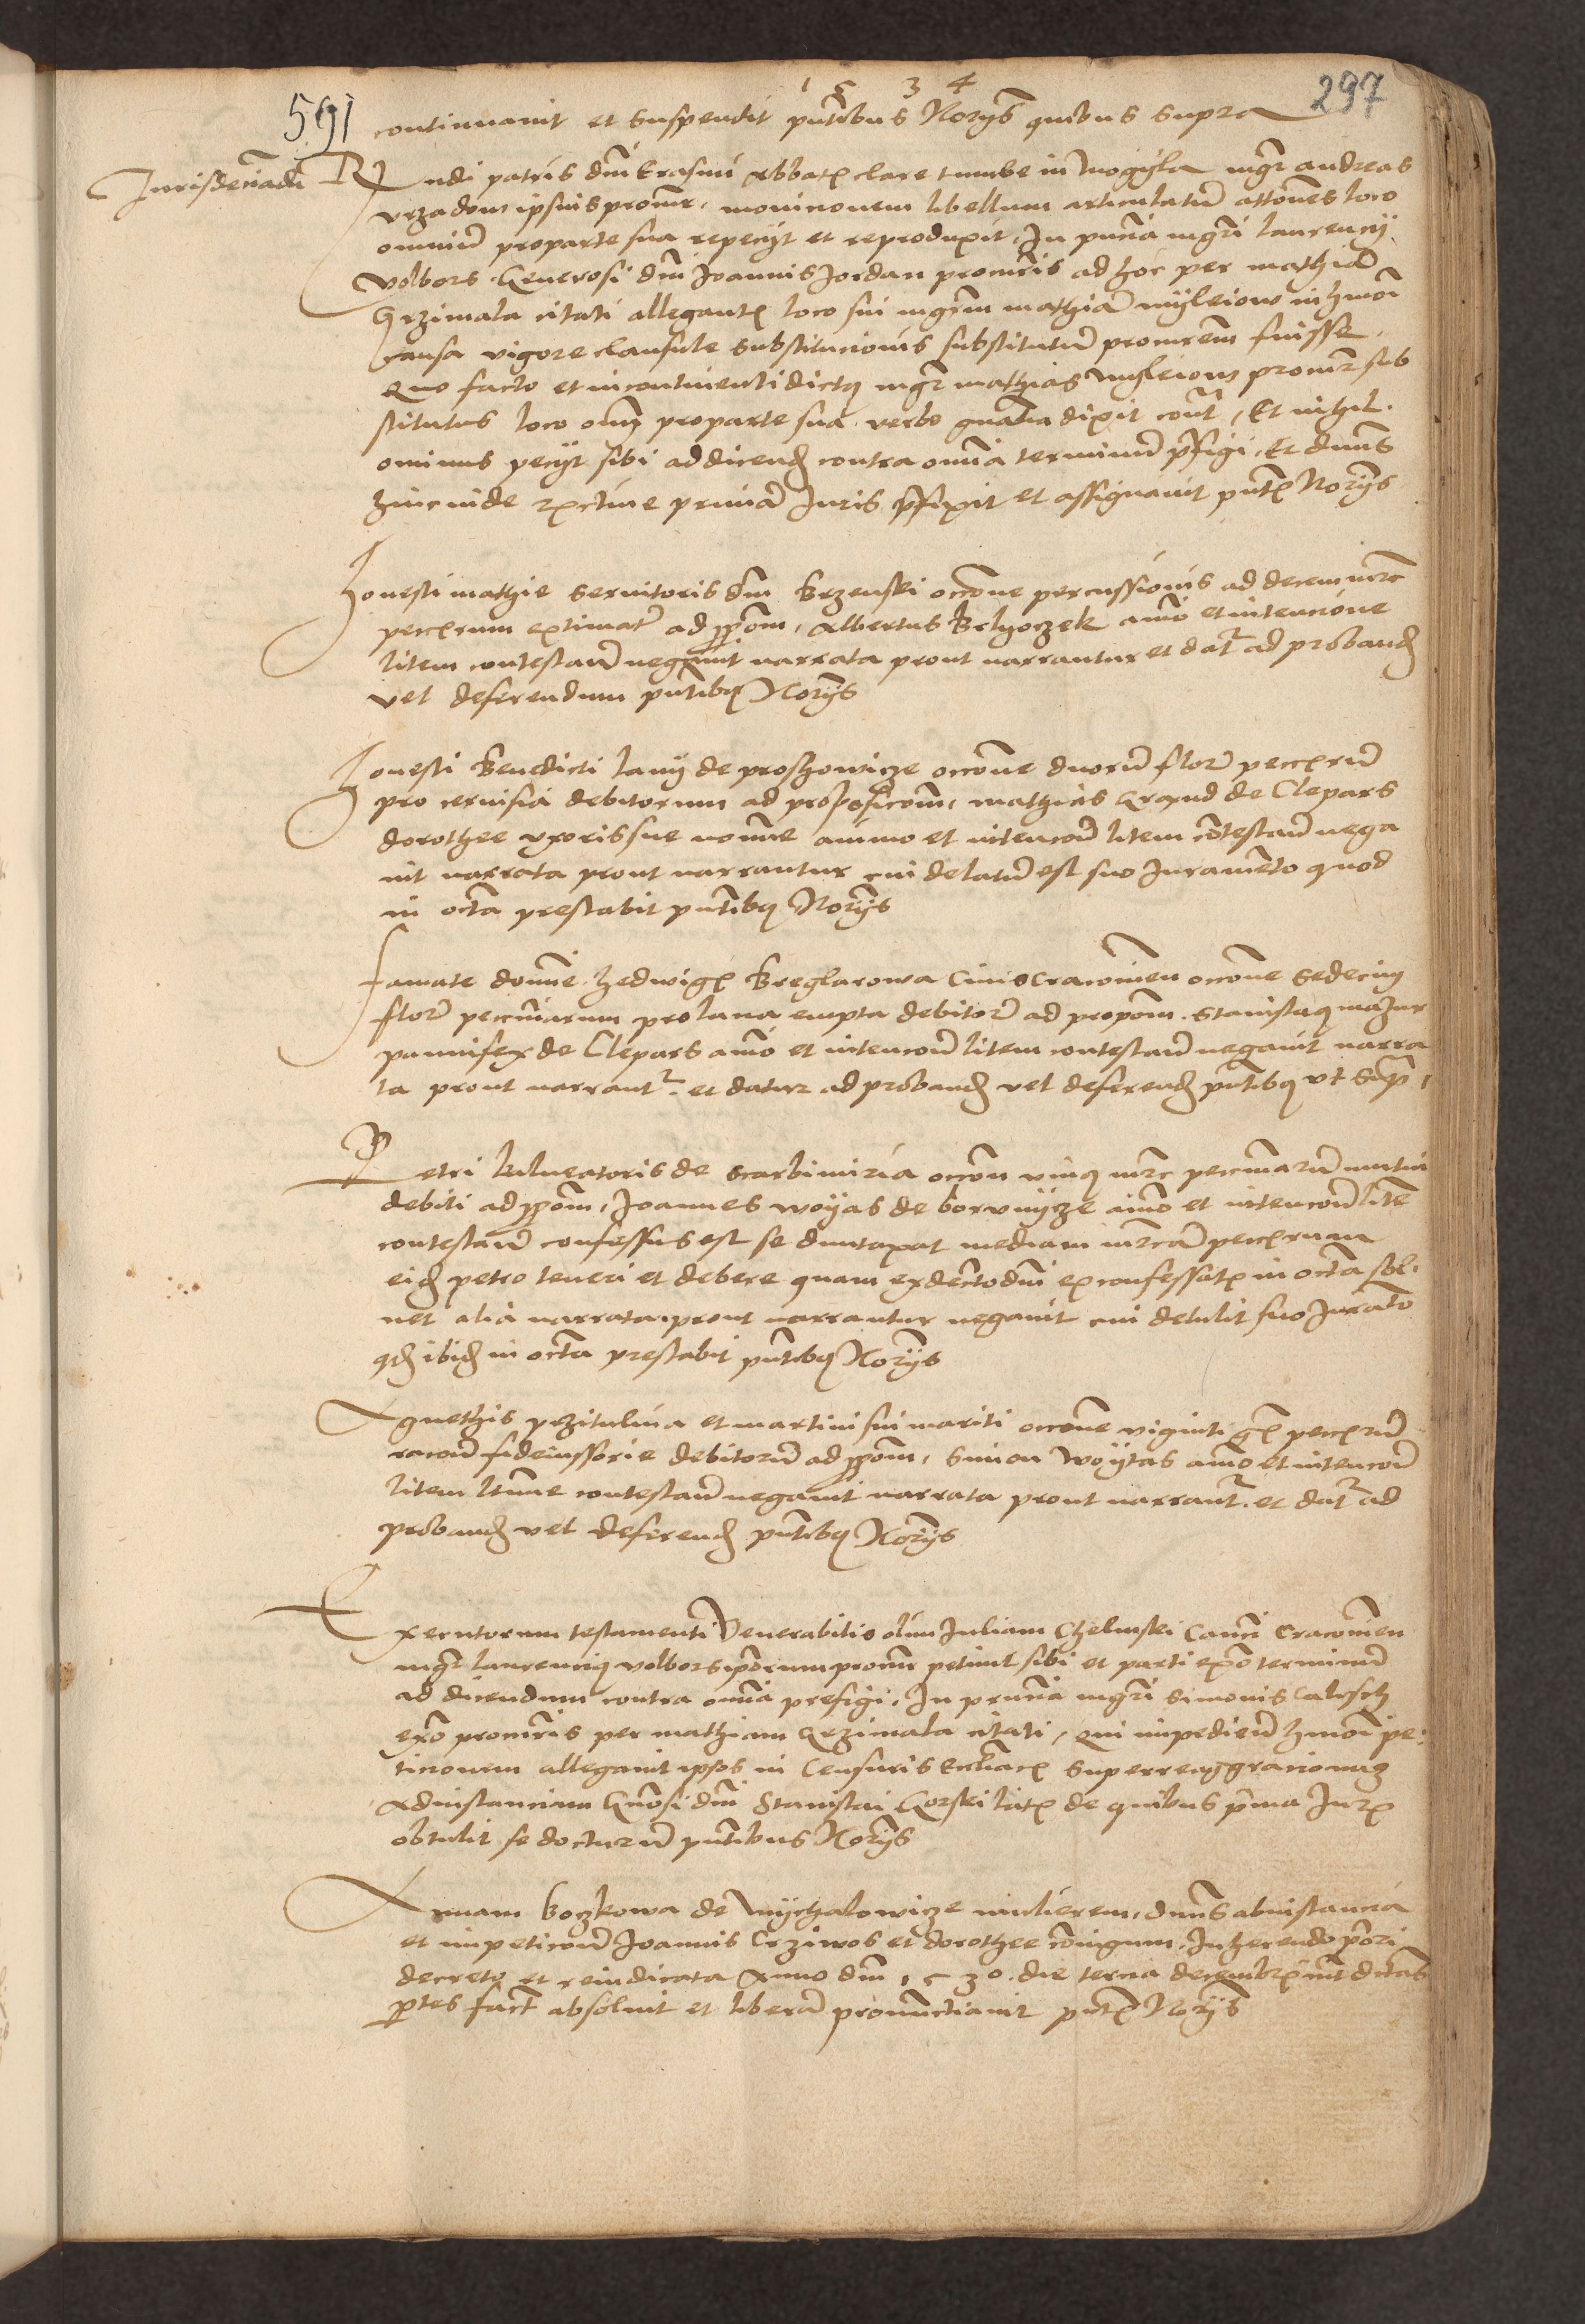 1 5 3 4
297
591
continuavit et suspendit pntibus Norys quibus supra
Jurisdeciadu
Rndi patris dni Erasmi Abbatis clare tumbe in mogyla mgr andreas
vrzadow ipsius procur, monicionem libellum articulatum attones loco
omnium pro parte sua repecyt et reproduxit, In pncia mgri laurency
volbors Generosi dni Joannis Jordan procuris ad hoc per mathia
Grzimala citati allegantis loco sui mgrm mathia myleiow in hmoi
causa vigore clausule substitucionis substitutu procurem fuisse,
Quo facto et incontinenti dictus mgr mathias mysleiow procur sub
stitutus loco oim pro parte sua verbo gnalia dixit cont, Et nihil
ominus pecyt sibi ad dicend contra omia terminu pfigi, Et dnns
hincinde rctine prima Juris pfixit et assignavit pntis Norys
Honesti mathie servitoris dni Brzenski occone percussionis ad decem mrc
pecciarum extimat ad ppom, Albertus Belyoczek aimo et intencione
litem contestan negavit narrata prout narrantur et dat ad proband
vel deferendum pntibus Norys
Honesti Benedicti lanij de proschowicze occone duoru flor pecciaru
pro cervisia debitorum ad proposicom, mathias Grqnd de Clepars
dorothee vxoris sue nomine animo et intencon litem contestan nega
vit narrata prout narrantur cui delatu est suo Juramento quod
in octa prestabit pntibus Norys
Famate domine hedwigis Kreglarowa Civis Cracovien occone sedecim
flor pecuniarum pro lana empta debitor ad propom. Stanislaus mazur
pannifex de Clepars aimo et intencon litem contestan negavit narra
ta prout narrant et datur ad proband vel deferend pntibus vt Sup
Petri balneatoris de scarbimiria occon vnius mrc pecuniaru mutui
debiti ad ppom, Joannes woyas de borvnycze aimo et intencon lite
contestan confessus est se duntaxat mediam mrca pecciarum
eid petro teneri et debere quam ex decto dni ex confessatis in octa sol
vet alia narrata prout narrantur negavit cui detulit suo Jurato
qd ibid in octa prestabit pntibus Norys
Agnethis przitulina et martini sui mariti occone viginti gr pecciaru
racon fideiussorie debitoru ad ppom, Simon Woytas aimo et intencon
litem ltime contestan negavit narrata prout narrant et dat ad
proband vel deferend pntibus Norys
Executorum testamenti Venerabilis olim Juliani Chelmski Canci Cracovien
mgr laurencius volbors iporum procur petivit sibi et parti exo terminu
ad dicendum contra omia prefigi, In pncia mgri Simonis Calisch
exo procuris per mathiam Grzimala citati, qui impedien hmoi pe
ticionem allegavit ipsos in Censuris Eccliacis superreaggracionis
Ad instanciam Gnosi dni Stanislai Gorski latis de quibus pma Juris
obtulit se docturu pntibus Norys
Annam Boczkowa de mychalowicze mulierem, dnns ab instancia
et impeticon Joannis Crziwos et dorothee conigum, Inherendo pori
decreto et rei iudicata Anno dni 1530 die tercia decembris int dictas
ptes fact absolvit et libera pronunctiavit pntis Norys